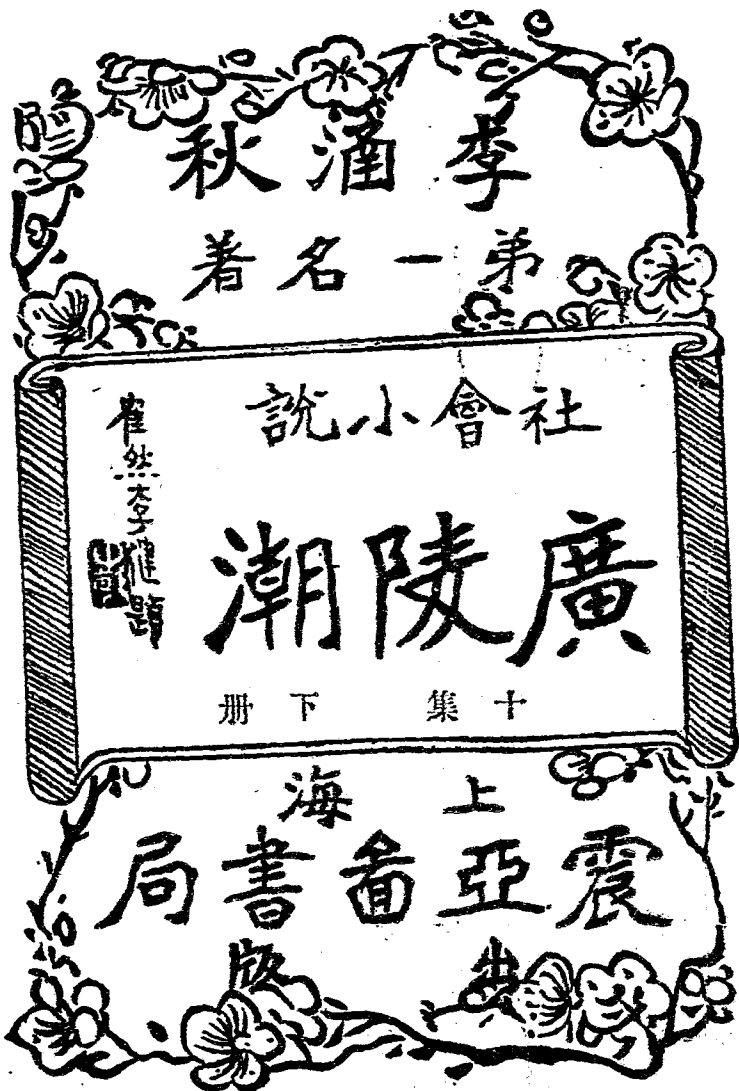 李涵秋
弟一名著
社會小說
廣陵潮
十集 下册
崔然李健題
上海
震亞啚書局
出版